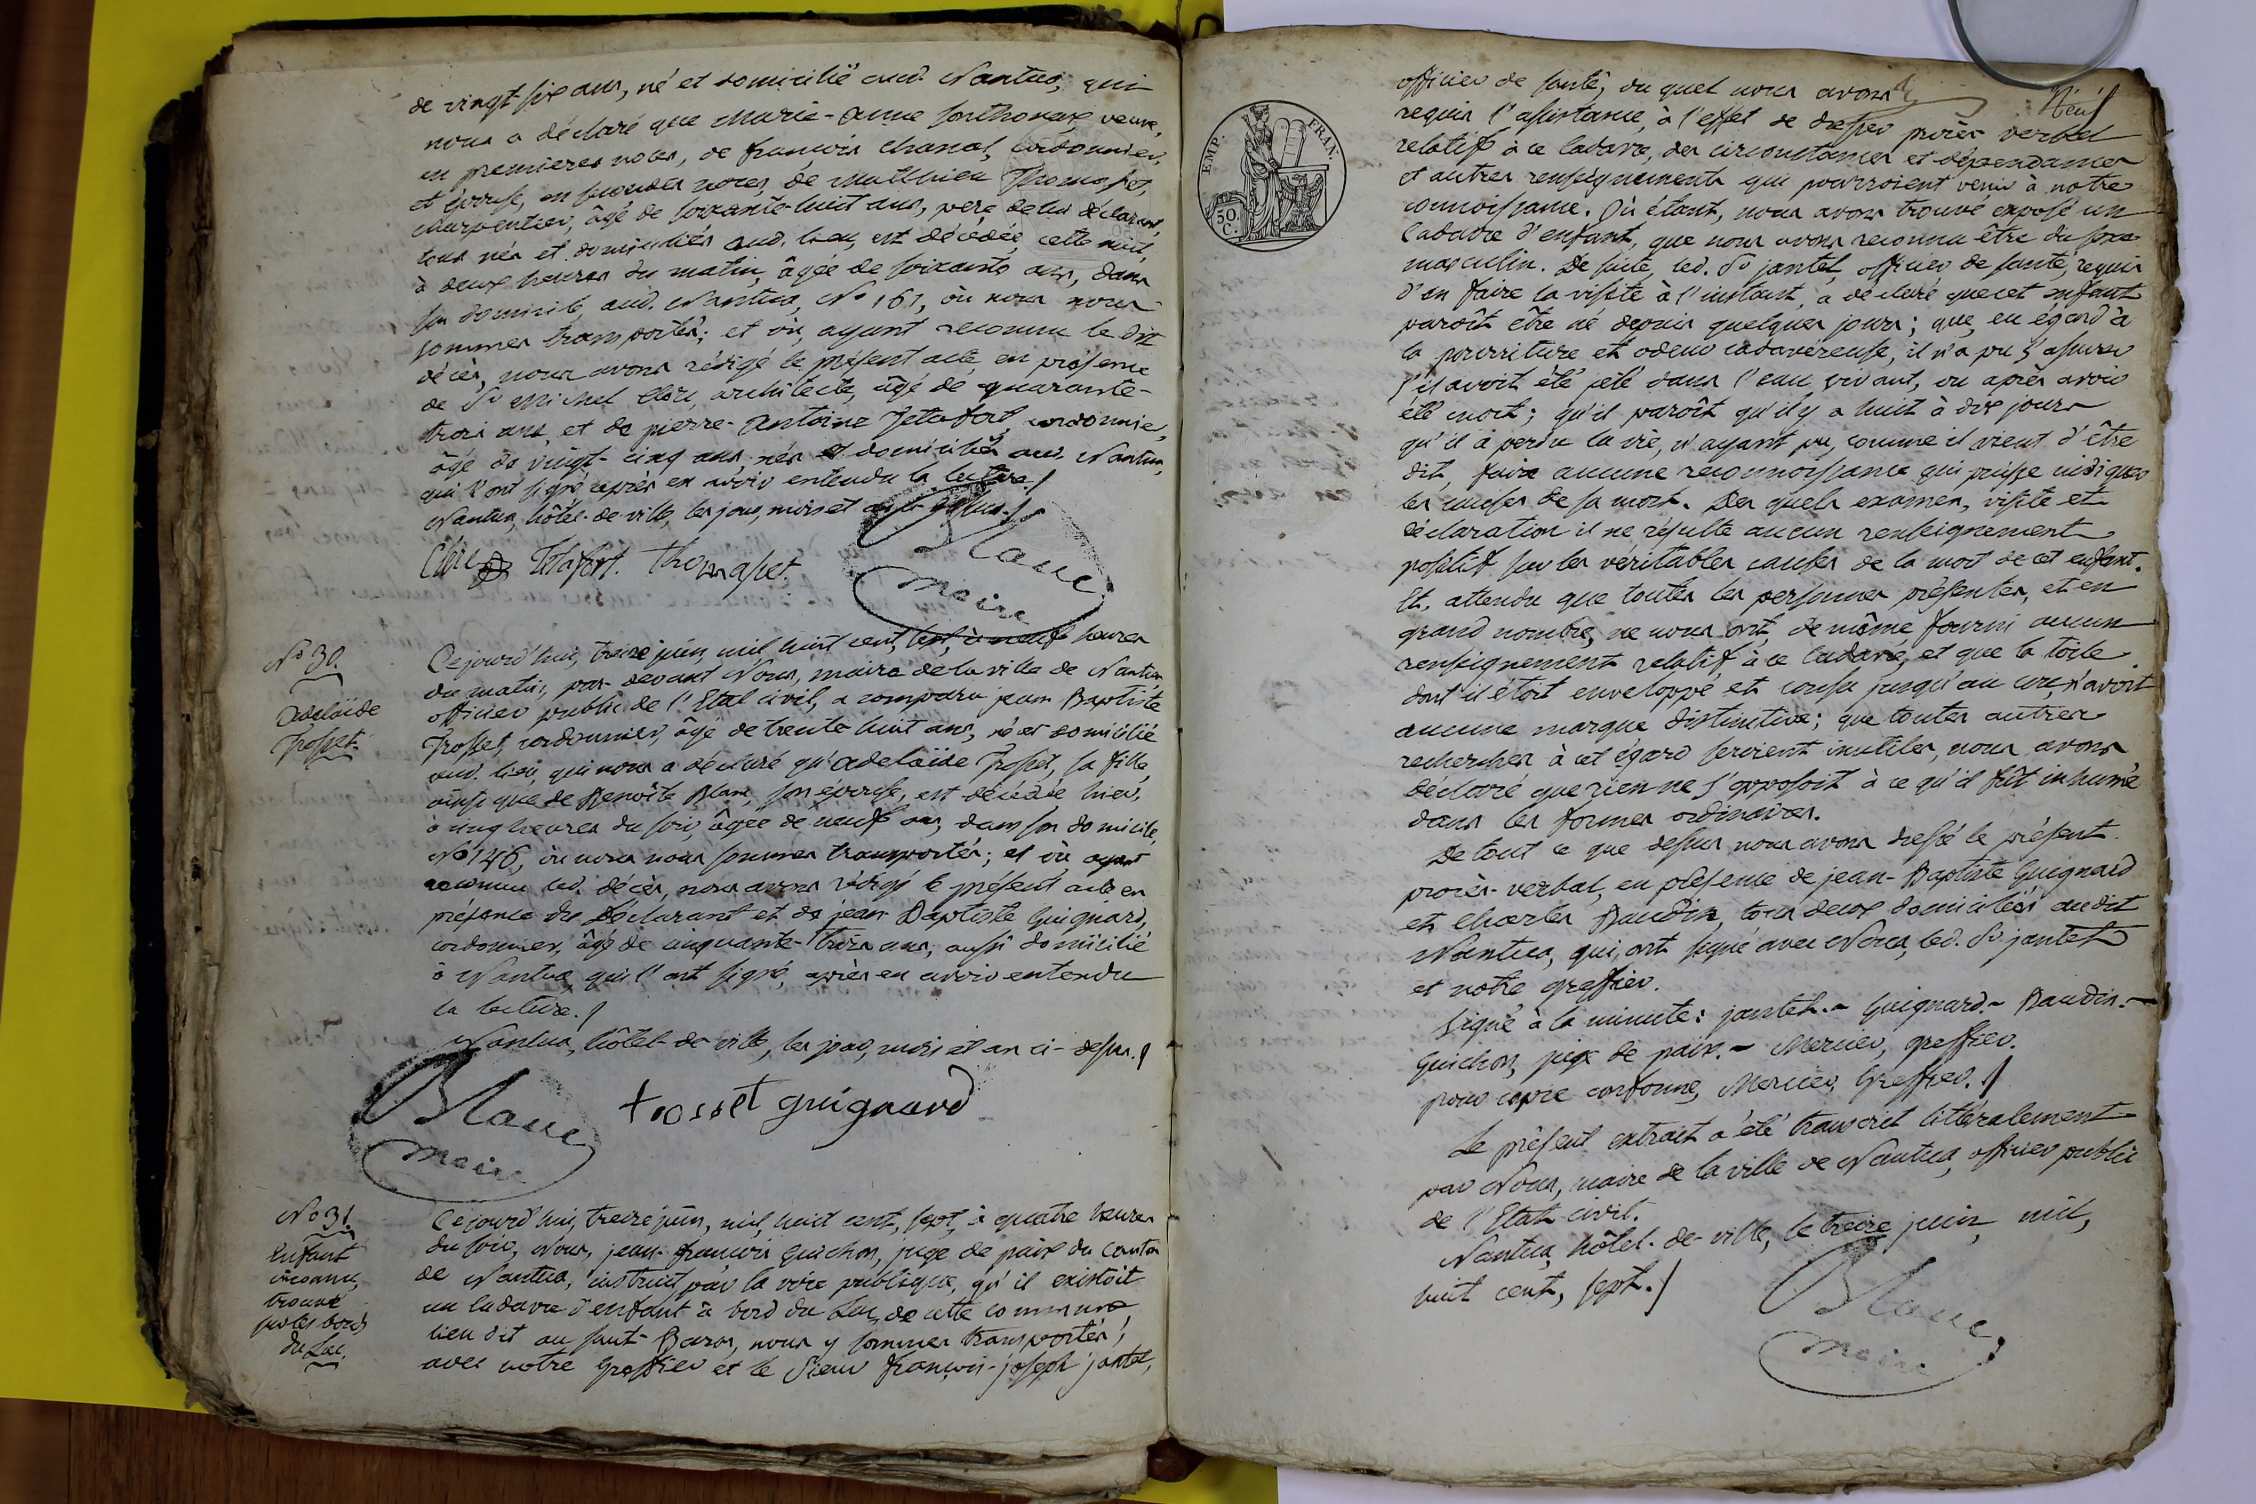 de vingt-six ans, né et domicilié aud. Nantua, qui
nous a déclaré que Marie-Anne Sonthonax, veuve,
en premieres noces, de françois Chanal, cordonnier,
et épouse, en secondes noces, de Matthieu Thomasset,
charpentier, âgé de soixante-huit ans, père de lui déclarant,
tous nés et domiciliés aud. lieu, est décédée, cette nuit,
à deux heures du matin, âgée de soixante ans, dans
son domicile, aud. Nantua, No 161, où nous nous
sommes transportés; et où, ayant reconnu le dit
décès, nous avons rédigé le présent acte, en présence
de Sr. Michel Clerc, architecte, âgé de quarante-
trois ans, et de pierre-Antoine Tétafort, cordonnier,
âgé de vingt-cinq ans, nés et domiciliés aud. Nantua,
qui l'ont signé après en avoir entendu la lecture./
Nantua, hôtel-de-ville, les jour, mois et an ci-dessus./
Clerc Tétafort. Thomasset.
Blanc
maire
No 30.
Adelaïde
Trosset.
Cejourd'hui, treize juin, mil huit cent, sept, à neuf heures
du matin, par-devant Nous, maire de la ville de Nantua
officier public de l'Etat civil, a comparu jean Baptiste
Trosset, cordonnier, âgé de trente huit ans, né et domicilié
aud. lieu, qui nous a déclaré qu'Adelaïde Trosset, sa fille,
ainsi que de Benoîte Blanc, son épouse, est décédée hier,
à cinq heures du soir, âgée de neuf ans, dans son domicile,
No 146, où nous nous sommes transportés; et où ayant
reconnu led. décès, nous avons rédigé le présent acte en
présence du Déclarant et de jean Baptiste Guignard,
cordonnier, âgé de cinquante-trois ans, aussi domicilié
à Nantua, qui l'ont signé, après en avoir entendu
la lecture./
Nantua, hôtel-de-ville, les jour, mois et an ci-dessus./
Blanc
maire
trosset guignard
No 31.
Enfant
inconnu,
trouvé
sur les bords
du Lac.
Cejourd'hui, treize juin, mil, huit cent, sept, à quatre heures
du soir, Nous, jean-françois Guichon, juge de paix du canton
de Nantua, instruit par la voix publique, qu'il existoit
un cadavre d'enfant à bord du Lac, de cette commune
lieu dit au saut-Baron, nous y sommes transportés,
avec notre Greffier et le Sieur françois-joseph jantet,
EMP. FRAN.
50.
C.
Neuf
officier de santé, du quel nous avons
requis l'assistance, à l'effet de dresser procès verbal
relatif à ce cadavre, des circonstances et dépendances
et autres renseignements qui pourroient venir à notre
connoissance. Où étant, nous avons trouvé exposé un
Cadavre d'enfant, que nous avons reconnu être du sexe
masculin. De suite, led. Sr. jantet, officier de santé, requis
d'en faire la visite à l'instant, a déclaré que cet enfant
paroît être né depuis quelques jours; que, eu égard à
la pourriture et odeur cadavéreuse, il n'a pu s'assurer
s'il avoit été jeté dans l'eau vivant, ou après avoir
été mort; qu'il paroît qu'il y a huit à dix jours
qu'il a perdu la vie, n'ayant pu, comme il vient d'être
dit, faire aucune reconnoissance qui puisse indiquer
les causes de sa mort. Des quels examen, visite et
déclaration il ne résulte aucun renseignement
positif sur les véritables causes de la mort de cet enfant.
Et, attendu que toutes les personnes présentes, et en
grand nombre, ne nous ont, de même fourni aucun
renseignement relatif à ce cadavre, et que la toile
dont il étoit enveloppé, et cousu jusqu'au cou, n'avoit
aucune marque distinctive; que toutes autres
recherches à cet égard seroient inutiles, nous avons
déclaré que rien ne s'opposoit à ce qu'il fût inhumé
dans les formes ordinaires.
De tout ce que dessus nous avons dressé le présent
procès-verbal, en présence de jean-Baptiste Guignard
et Charles Baudin, tous deux domiciliés audit
Nantua, qui ont signé avec Nous, led. Sr. jantet
et notre greffier.
Signé à la minute: jantet.- Guignard- Baudin.-
Guichon, juge de paix.- Mercier, greffier.
pour copie conforme, Mercier, Greffier./
Le présent extrait a été transcrit littéralement
par Nous, maire de la ville de Nantua, officier public
de l'Etat civil.
Nantua, hôtel-de-ville, le treize juin, mil,
huit cent, sept./
Blanc
maire